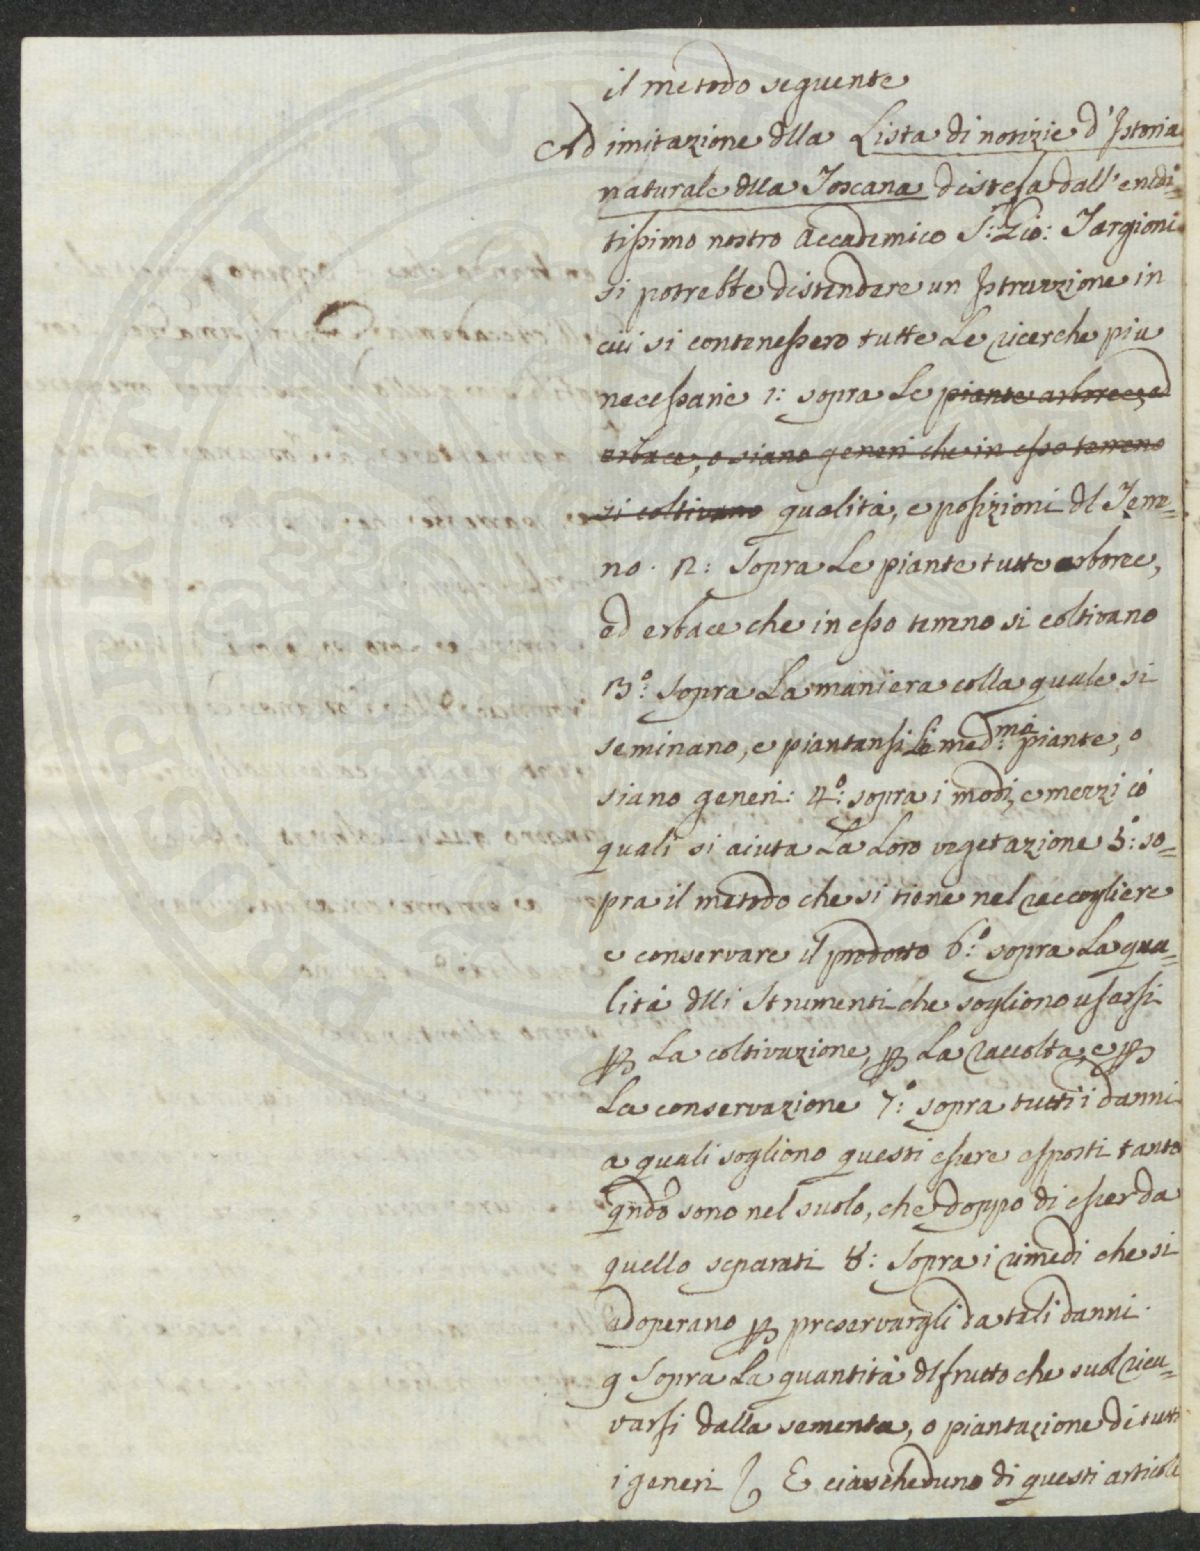 il metodo seguente
Ad imitazione dlla Lista di notizie d'Istoria
naturale dlla Toscana distesa dall'erudi=
tissimo nostro Accademico S: Gio: Targioni
si potrebbe distendere un Istruzzione in
cui si contenessero tutte le ricerche piu
necessarie 1: sopra le piante arboree, ed
erbacee, o siano generi che in esso terreno
si coltivano qualità, e posizioni dl Terre=
no. 2: Sopra le piante tutte arboree,
ed erbacee che in esso terreno si coltivano
3°: sopra la maniera colla quale si
seminano, e piantansi le med:me piante, o
siano generi: 4°: sopra i modi, e mezzi co'
quali si aiuta la loro vegetazione 5°: so=
pra il metodo che si tiene nel raccogliere
e conservare il prodotto 6°: sopra la qua=
lità dlli Strumenti che sogliono usarsi
p la coltivazione, p la raccolta, e p
la conservazione 7°: sopra tutti i danni
a quali sogliono questi essere esposti tanto
qndo sono nel suolo, che doppo di esser da
quello separati 8: Sopra i rimedi che si
adoperano p preservargli da tali danni.
9 Sopra la quantità dl frutto che suol rica=
varsi dalla sementa, o piantazione di tutti
i generi E ciascheduno di questi articoli